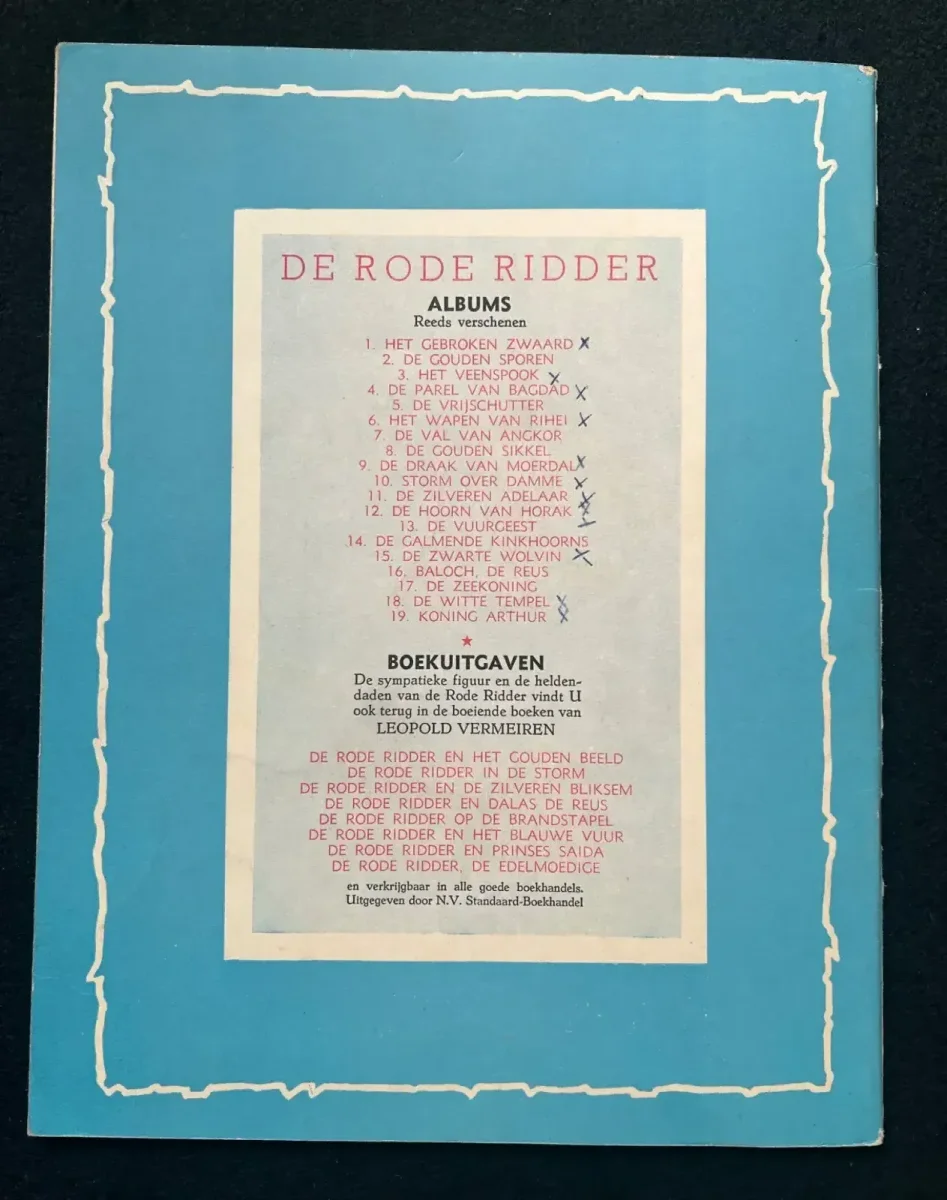 DE RODE RIDDER
ALBUMS
Reeds verschenen
1. HET GEBROKEN ZWAARD X
2. DE GOUDEN SPOREN
3. HET VEENSPOOK X
4. DE PAREL VAN BAGDAD X
5. DE VRIJSCHUTTER
6. HET WAPEN VAN RIHEI X
7. DE VAL VAN ANGKOR
8. DE GOUDEN SIKKEL
9. DE DRAAK VAN MOERDAL X
10. STORM OVER DAMME X
11. DE ZILVEREN ADELAAR X
12. DE HOORN VAN HORAK X
13. DE VUURGEEST
14. DE GALMENDE KINKHOORNS
15. DE ZWARTE WOLVIN X
16. BALOCH, DE REUS
17. DE ZEEKONING
18. DE WITTE TEMPEL X
19. KONING ARTHUR X
★
BOEKUITGAVEN
De sympatieke figuur en de helden-
daden van de Rode Ridder vindt U
ook terug in de boeiende boeken van
LEOPOLD VERMEIREN
DE RODE RIDDER EN HET GOUDEN BEELD
DE RODE RIDDER IN DE STORM
DE RODE RIDDER EN DE ZILVEREN BLIKSEM
DE RODE RIDDER EN DALAS DE REUS
DE RODE RIDDER OP DE BRANDSTAPEL
DE RODE RIDDER EN HET BLAUWE VUUR
DE RODE RIDDER EN PRINSES SAIDA
DE RODE RIDDER, DE EDELMOEDIGE
en verkrijgbaar in alle goede boekhandels.
Uitgegeven door N.V. Standaard-Boekhandel